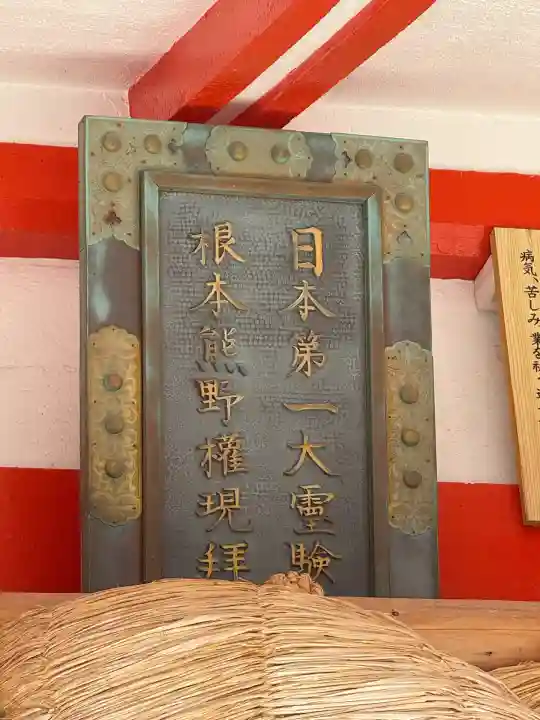 日本第一大霊験
根本熊野權現拜
病気、苦しみ、業を